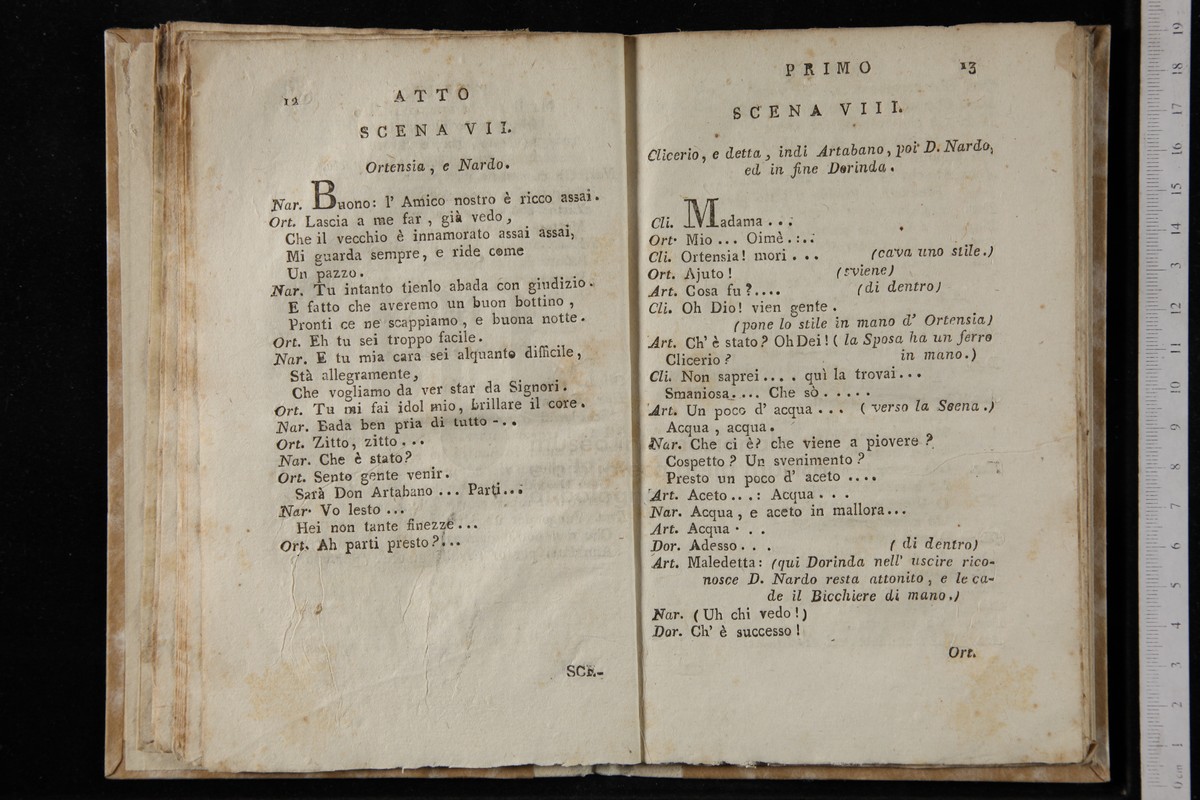 12
ATTO
SCENA VII.
Ortensia, e Nardo.
Nar. Buono: l' Amico nostro è ricco assai.
Ort. Lascia a me far, già vedo,
Che il vecchio è innamorato assai assai,
Mi guarda sempre, e ride come
Un pazzo.
Nar. Tu intanto tienlo abada con giudizio.
E fatto che averemo un buon bottino,
Pronti ce ne scappiamo, e buona notte.
Ort. Eh tu sei troppo facile.
Nar. E tu mia cara sei alquanto difficile,
Stà allegramente,
Che vogliamo da ver star da Signori.
Ort. Tu mi fai idol mio, brillare il core.
Nar. Bada ben pria di tutto - . .
Ort. Zitto, zitto . . .
Nar. Che è stato?
Ort. Sento gente venir.
Sarà Don Artabano ... Parti...
Nar. Vo lesto ...
Hei non tante finezze...
Ort. Ah parti presto?...
SCE-
PRIMO
13
SCENA VIII.
Clicerio, e detta, indi Artabano, poi D. Nardo,
ed in fine Dorinda.
Cli. Madama . . .
Ort. Mio ... Oimè. : . .
Cli. Ortensia! mori . . . (cava uno stile.)
Ort. Ajuto! (sviene)
Art. Cosa fu?.... (di dentro)
Cli. Oh Dio! vien gente.
(pone lo stile in mano d' Ortensia)
Art. Ch' è stato? Oh Dei! ( la Sposa ha un ferro
Clicerio? in mano.)
Cli. Non saprei.... quì la trovai...
Smaniosa.... Che sò . . . . .
Art. Un poco d' acqua . . . ( verso la Scena.)
Acqua, acqua.
Nar. Che ci è? che viene a piovere?
Cospetto? Un svenimento?
Presto un poco d' aceto ....
Art. Aceto...: Acqua . . .
Nar. Acqua, e aceto in mallora...
Art. Acqua . . .
Dor. Adesso. . . ( di dentro)
Art. Maledetta: (qui Dorinda nell' uscire rico-
nosce D. Nardo resta attonito, e le ca-
de il Bicchiere di mano.)
Nar. (Uh chi vedo!)
Dor. Ch' è successo!
Ort.
0 cm 1 2 3 4 5 6 7 8 9 10 11 12 13 14 15 16 17 18 19